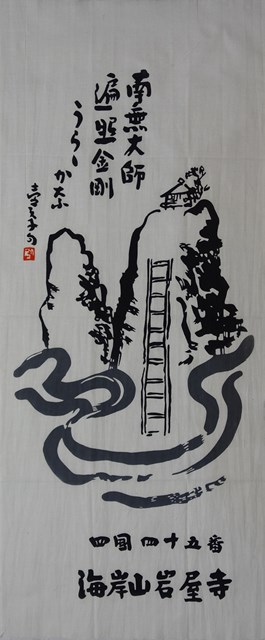 南無大師
遍照金剛
うらゝかな
四国四十五番
海岸山岩屋寺